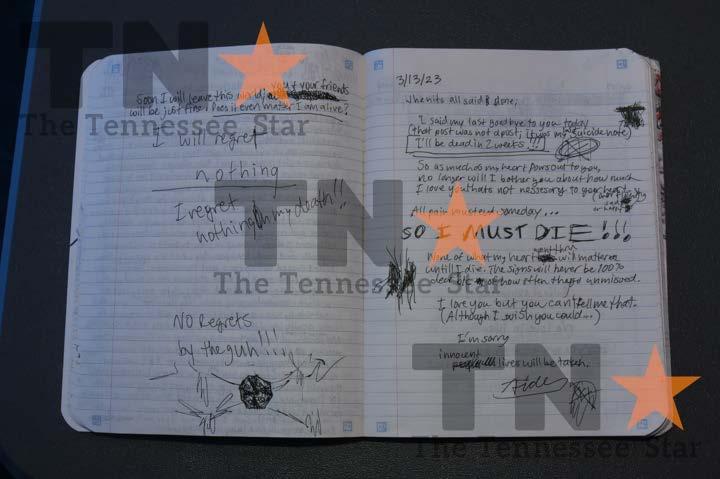 TN
The Tennessee Star
Soon I will leave this world & you & your friends
will be just fine. Does it even matter I am alive?
I will regret
nothing
I regret
nothing in my death!!
NO Regrets
by the gun!!!
3/13/23
When its all said & done,
I said my last goodbye to you today
(that post was not a post; it was my suicide note)
I'll be dead in 2 weeks!!!
So as much as my heart pours out to you,
no longer will I bother you about how much
I love you thats not nessesary to your heart
All pain must end someday...
SO I MUST DIE!!!
None of what my heart will matter
untill I die. The signs will never be 100%
of how often unnoticed.
I love you but you can't tell me that.
(Although I wish you could...)
I'm sorry
innocent
lives will be taken.
TN
The Tennessee Star
TN
The Tennessee Star